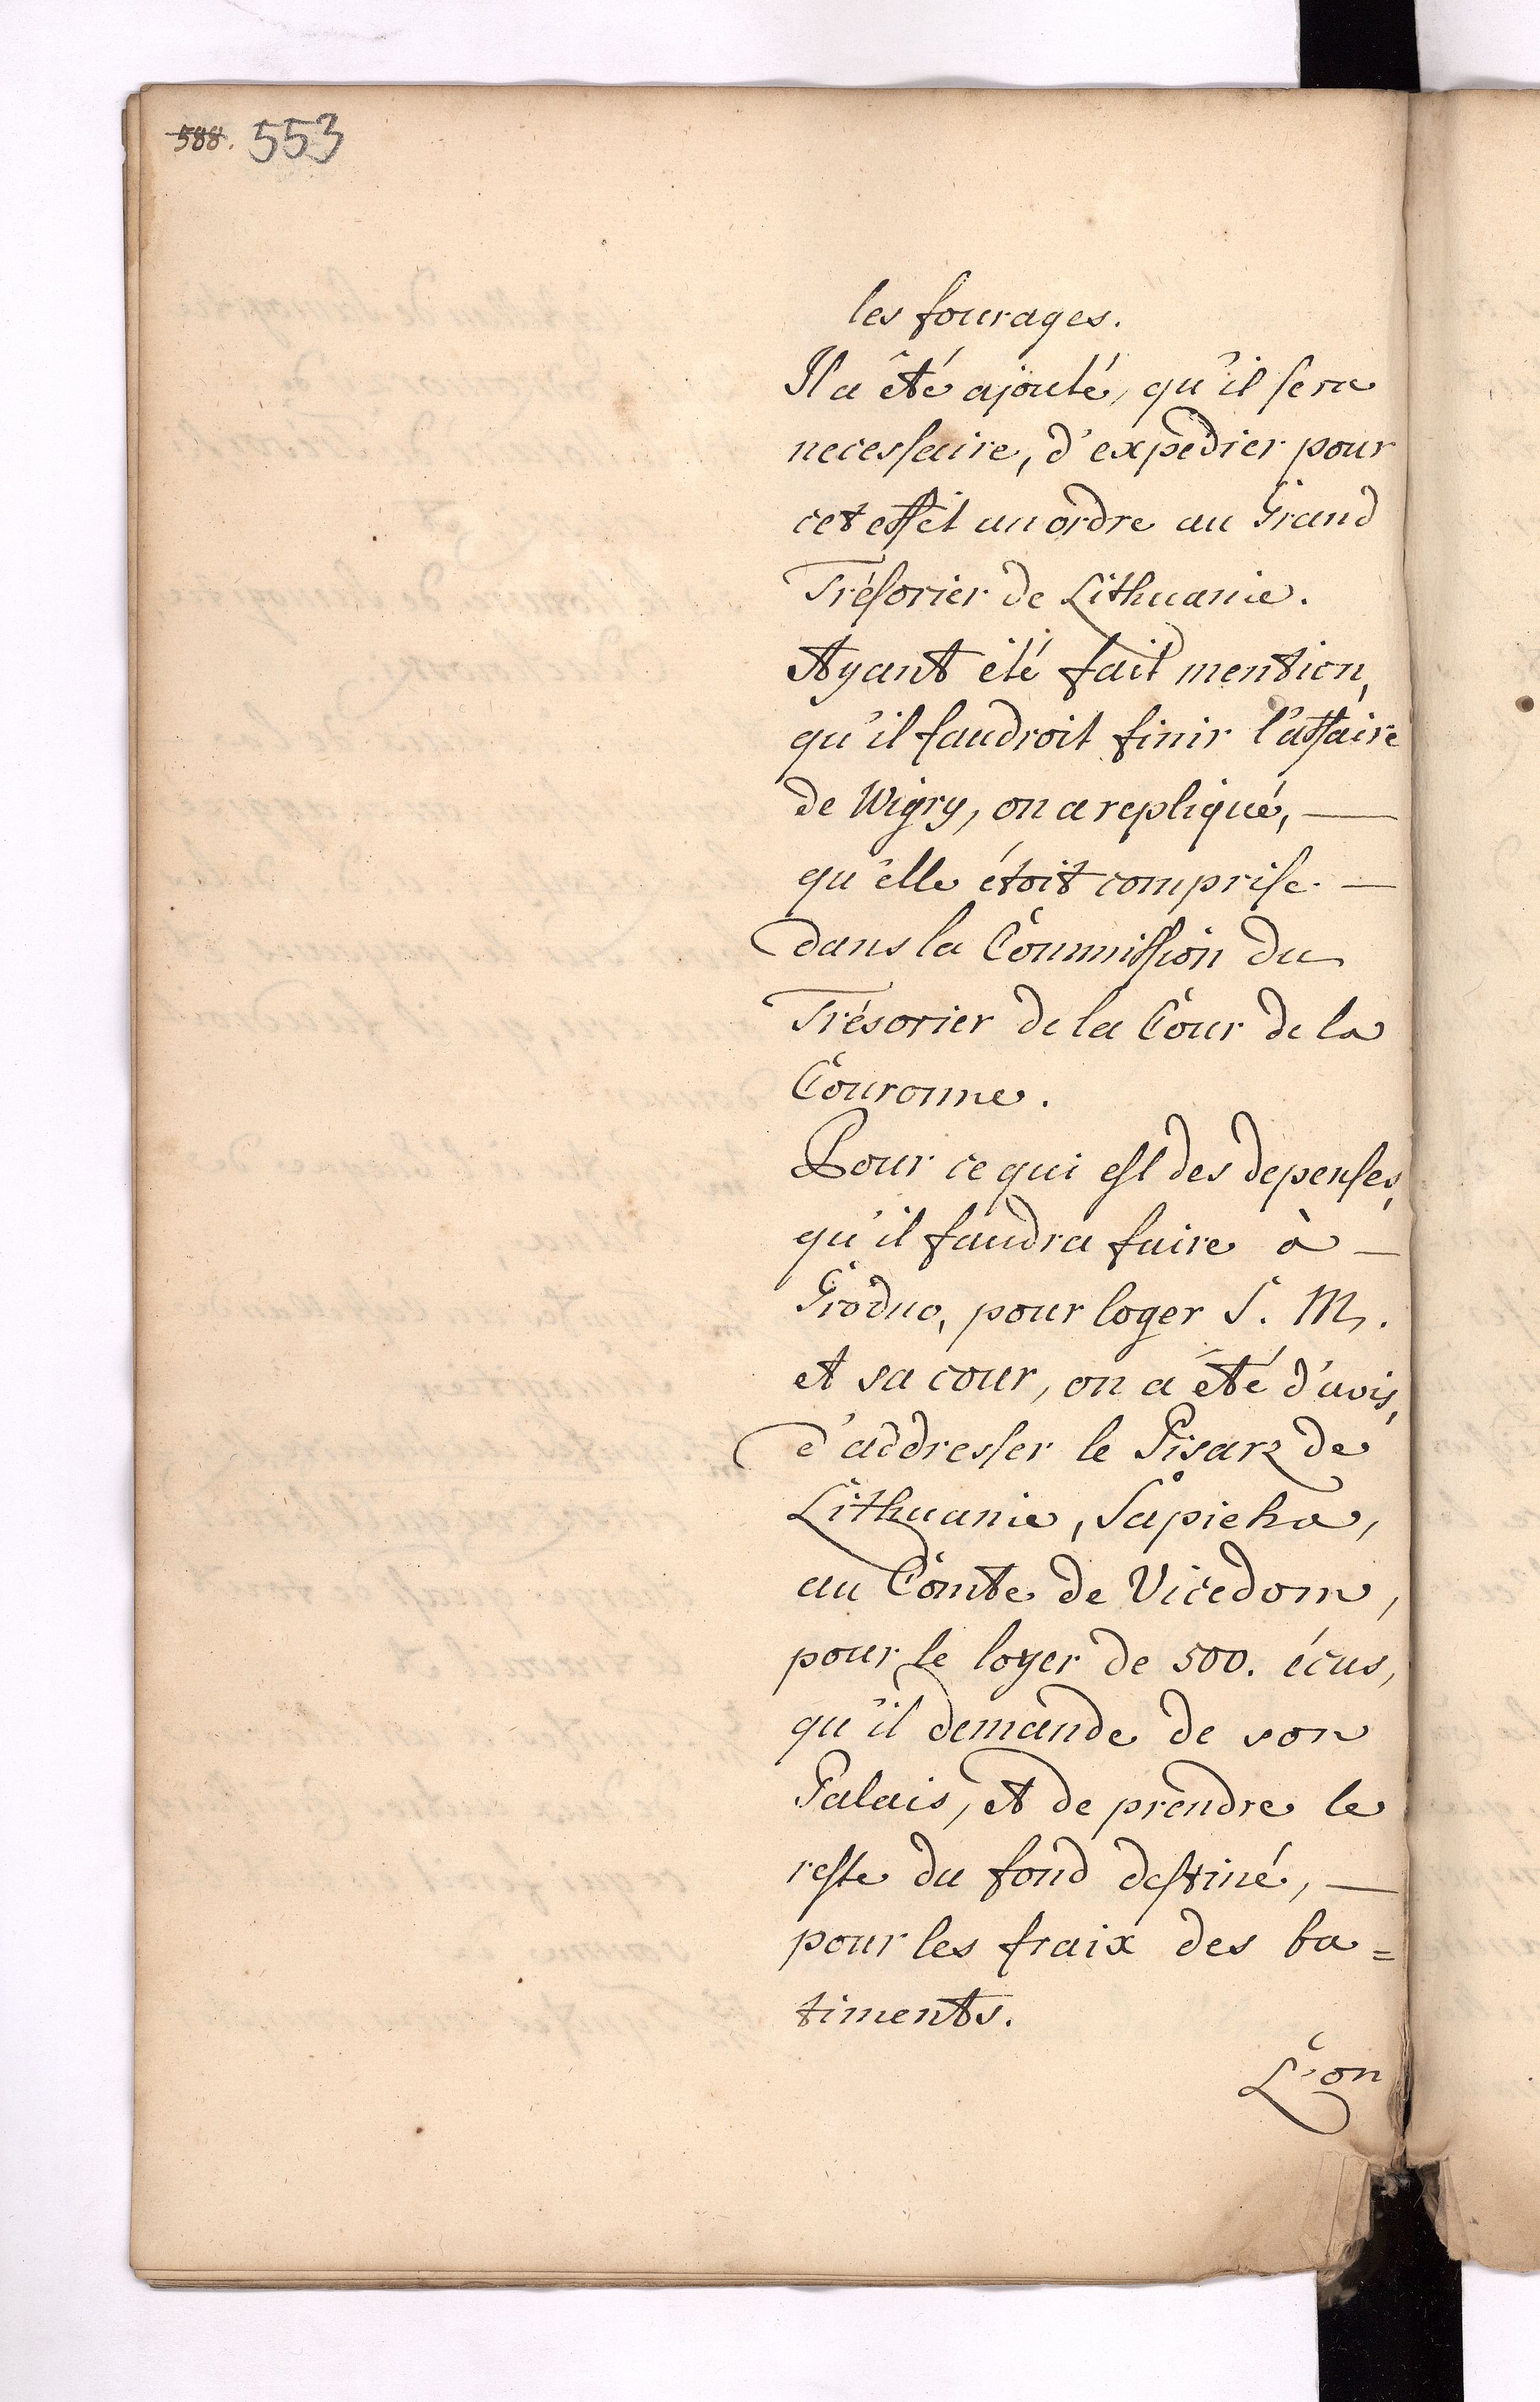 588. 553
les fourages.
Il a êté ajouté, qu'il sera
necessaire, d'expedier pour
cet effét un ordre au Grand
Trésorier de Lithuanie.
Ayant été fait mention,
qu'il faudroit finir l'affaire
de Wigry, on a repliqué, —
qu'elle étoit comprise —
dans la Commission du
Trésorier de la Cour de la
Couronne.
Pour ce qui est des depenses,
qu'il faudra faire à —
Grodno, pour loger S. M.
et sa cour, on a été d'avis,
d'addresser le Pisarz de
Lithuanie, Sapieha,
au Comte de Vicedom,
pour le loyer de 500. écus,
qu'il demande de son
Palais, et de prendre le
reste du fond destiné, —
pour les fraix des ba=
timents.
L'on